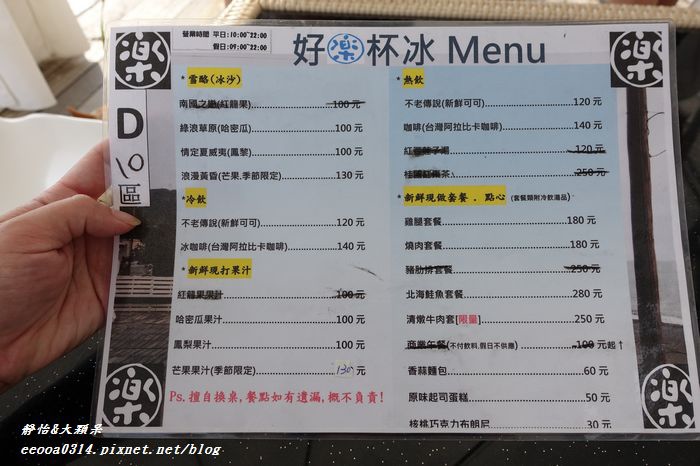 樂
營業時間 平日:10:00~22:00
假日:09:00~22:00
好樂杯冰 Menu
樂
D
10
區
*雪酪(冰沙)
南國之戀(紅龍果)........100 元
綠浪草原(哈密瓜)........100 元
情定夏威夷(鳳黎)........100 元
浪漫黃昏(芒果.季節限定)........130 元
*冷飲
不老傳說(新鮮可可)........120 元
冰咖啡(台灣阿拉比卡咖啡)........140 元
*新鮮現打果汁
紅龍果果汁........100 元
哈密瓜果汁........100 元
鳳梨果汁........100 元
芒果果汁(季節限定)........130 元
Ps.擅自換桌,餐點如有遺漏,概不負責!
*熱飲
不老傳說(新鮮可可)........120 元
咖啡(台灣阿拉比卡咖啡)........140 元
紅........120 元
桂圓紅棗茶........250 元
*新鮮現做套餐 . 點心 (套餐類附冷飲湯品)
雞腿套餐........180 元
燒肉套餐........180 元
豬肋排套餐........250 元
北海鮭魚套餐........280 元
清燉牛肉套[限量]........250 元
商業午餐(不付飲料,假日不供應)........100 元起↑
香蒜麵包........60 元
原味起司蛋糕........50 元
核桃巧克力布朗尼........30 元
樂
樂
靜怡&大顆呆
eeooa0314.pixnet.net/blog